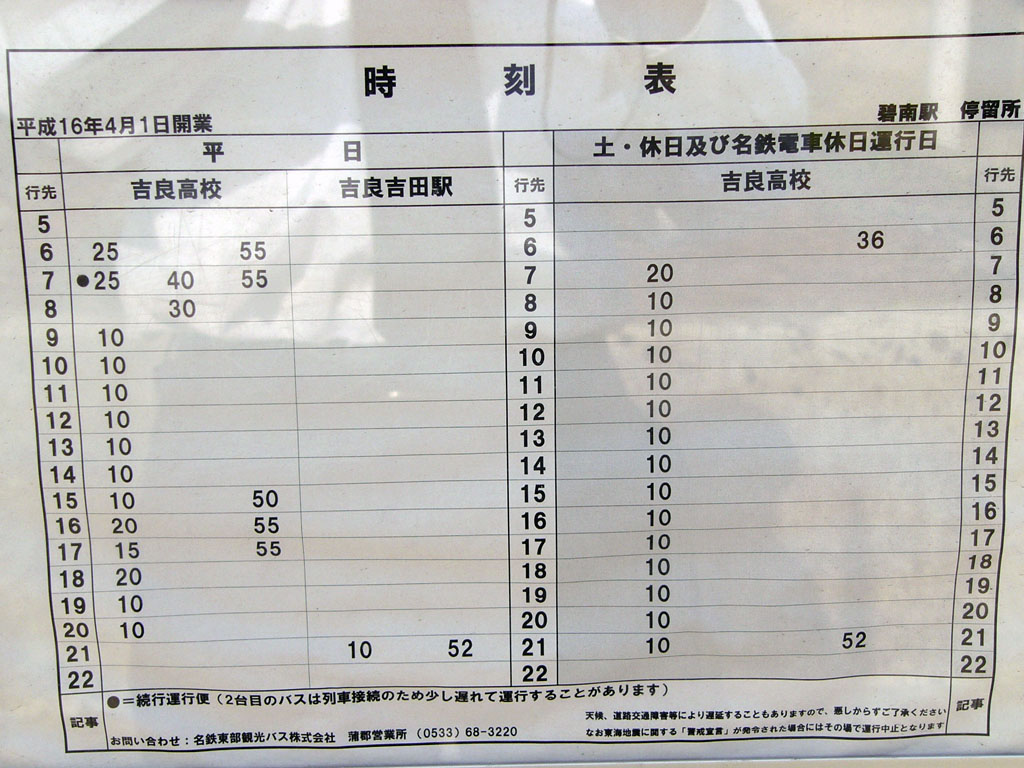 時刻表
平成16年4月1日開業 碧南駅 停留所
平日 土・休日及び名鉄電車休日運行日
行先 吉良高校 吉良吉田駅 行先 吉良高校 行先
5 5 5
6 25 55 6 36 6
7 ●25 40 55 7 20 7
8 30 8 10 8
9 10 9 10 9
10 10 10 10 10
11 10 11 10 11
12 10 12 10 12
13 10 13 10 13
14 10 14 10 14
15 10 50 15 10 15
16 20 55 16 10 16
17 15 55 17 10 17
18 20 18 10 18
19 10 19 10 19
20 10 20 10 20
21 10 52 21 10 52 21
22 22 22
記事 ●=続行運行便(2台目のバスは列車接続のため少し遅れて運行することがあります) 記事
お問い合わせ:名鉄東部観光バス株式会社 蒲郡営業所 (0533) 68-3220
天候、道路交通障害等により遅延することもありますので、悪しからずご了承ください
なお東海地震に関する「警戒宣言」が発令された場合にはその場で運行中止となります